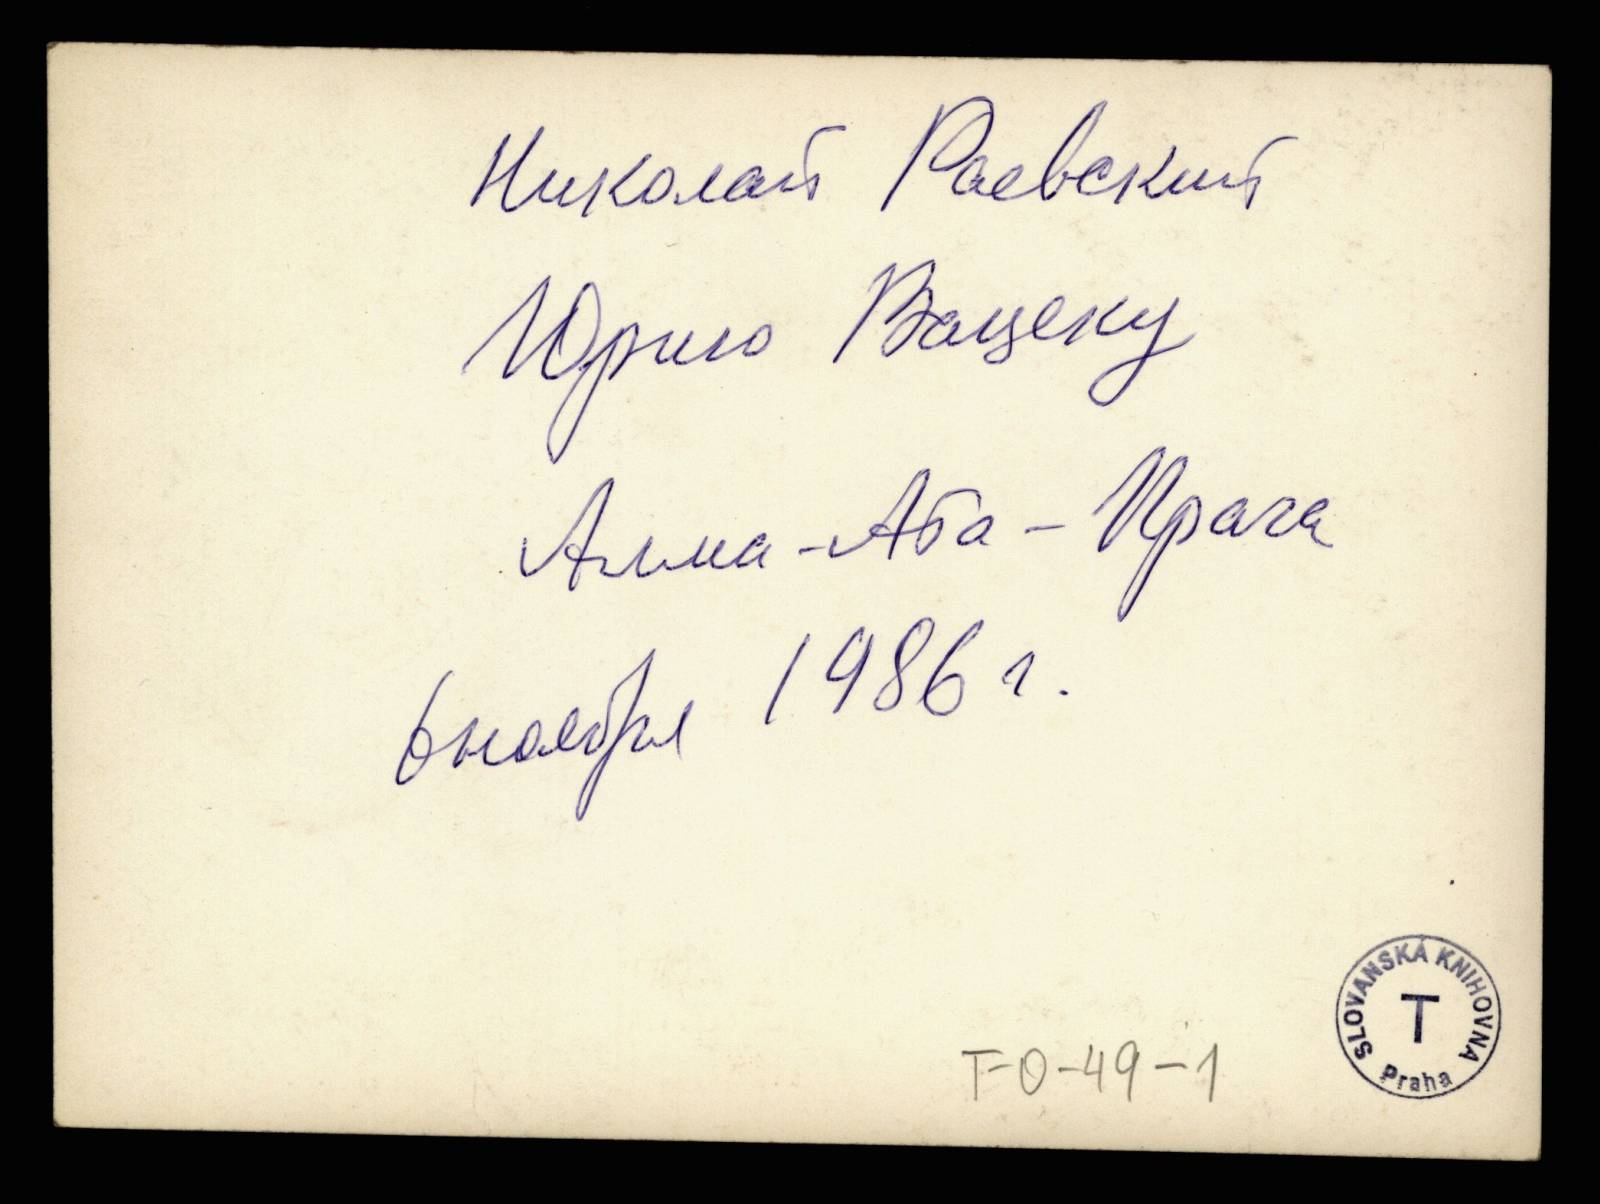 Николай Раевский
Юрию Вацеку
Алма-Ата - Прага
6 ноября 1986 г.
T-0-49-1
SLOVANSKÁ KNIHOVNA
T
Praha